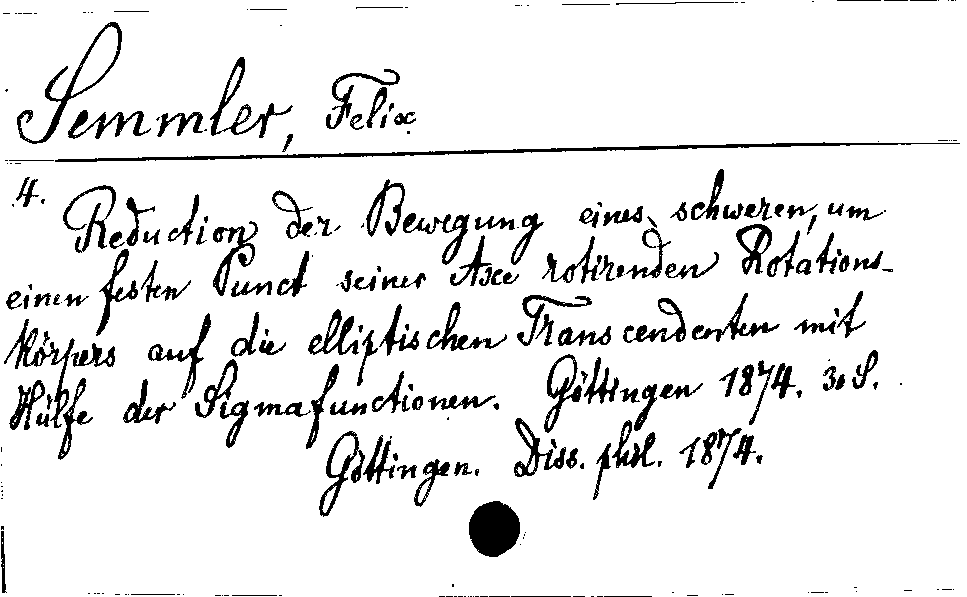 Semmler, Felix
4.
Reduction der Bewegung eines schweren, um
einen festen Punct seiner Axe rotirenden Rotations-
körpers auf die elliptischen Transcendenten mit
Hülfe der Sigmafunctionen. Göttingen 1874. 30 S.
Göttingen. Diss. phil. 1874.